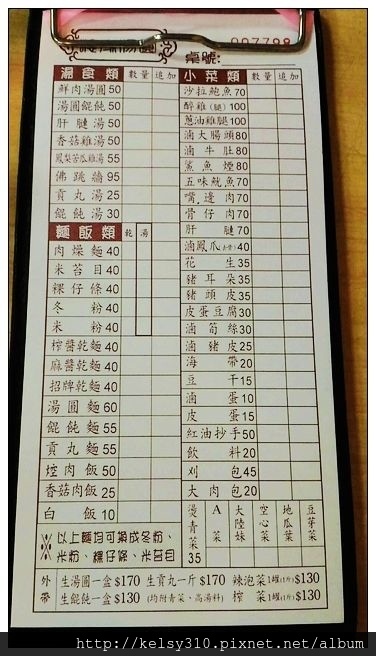 桌號:
007788
湯食類 數量 追加
鮮肉湯圓 50
湯圓餛飩 50
肝腱湯 50
香菇雞湯 50
鳳梨苦瓜雞湯 55
佛跳牆 95
貢丸湯 25
餛飩湯 30
麵飯類 乾 湯
肉燥麵 40
米苔目 40
粿仔條 40
冬粉 40
米粉 40
榨醬乾麵 40
麻醬乾麵 40
招牌乾麵 40
湯圓麵 60
餛飩麵 55
貢丸麵 55
焢肉飯 50
香菇肉飯 25
白飯 10
※以上麵均可換成冬粉、
米粉、粿仔條、米苔目
小菜類 數量 追加
沙拉鮑魚 70
醉雞(腿) 100
蔥油雞腿 100
滷大腸頭 80
滷牛肚 80
鯊魚煙 80
五味魷魚 70
嘴邊肉 70
骨仔肉 70
肝腱 70
滷鳳爪 40
花生 35
豬耳朵 35
豬頭皮 35
皮蛋豆腐 30
滷筍絲 30
滷豬皮 25
海帶 20
豆干 15
滷蛋 10
皮蛋 15
紅油抄手 50
飲料 20
刈包 45
大肉包 20
燙青菜 35
A菜
大陸妹
空心菜
地瓜葉
豆芽菜
外帶
生湯圓一盒 $170 生貢丸一斤 $170 辣泡菜 1罐(1斤) $130
生餛飩一盒 $130 (均附青菜、高湯料) 榨菜 1罐(1斤) $130
http://kelsy310.pixnet.net/album